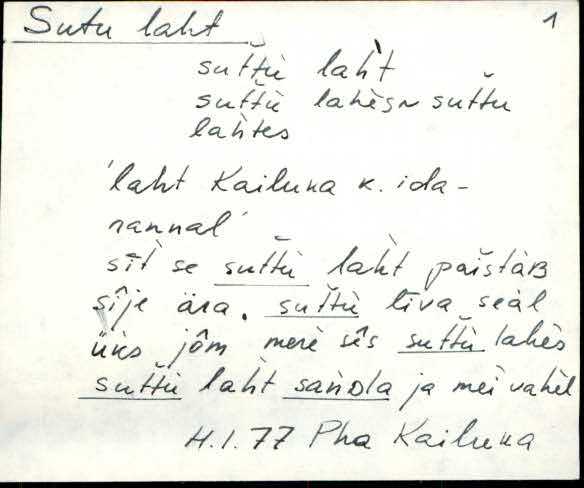 Sutu laht 1
sut̆tù laht
sut̆tù lahèsn sut̆tu
lahtes
'laht Kailuka k. ida-
rannal'
sīt se sut̆tù laht paìstàʙ
sîje ära. sut̆tù līva seàl
üks jôm merè sês sut̆tù lahès
sut̆tù laht sandla ja mei vahèl
H.I.77 Pha Kailuka